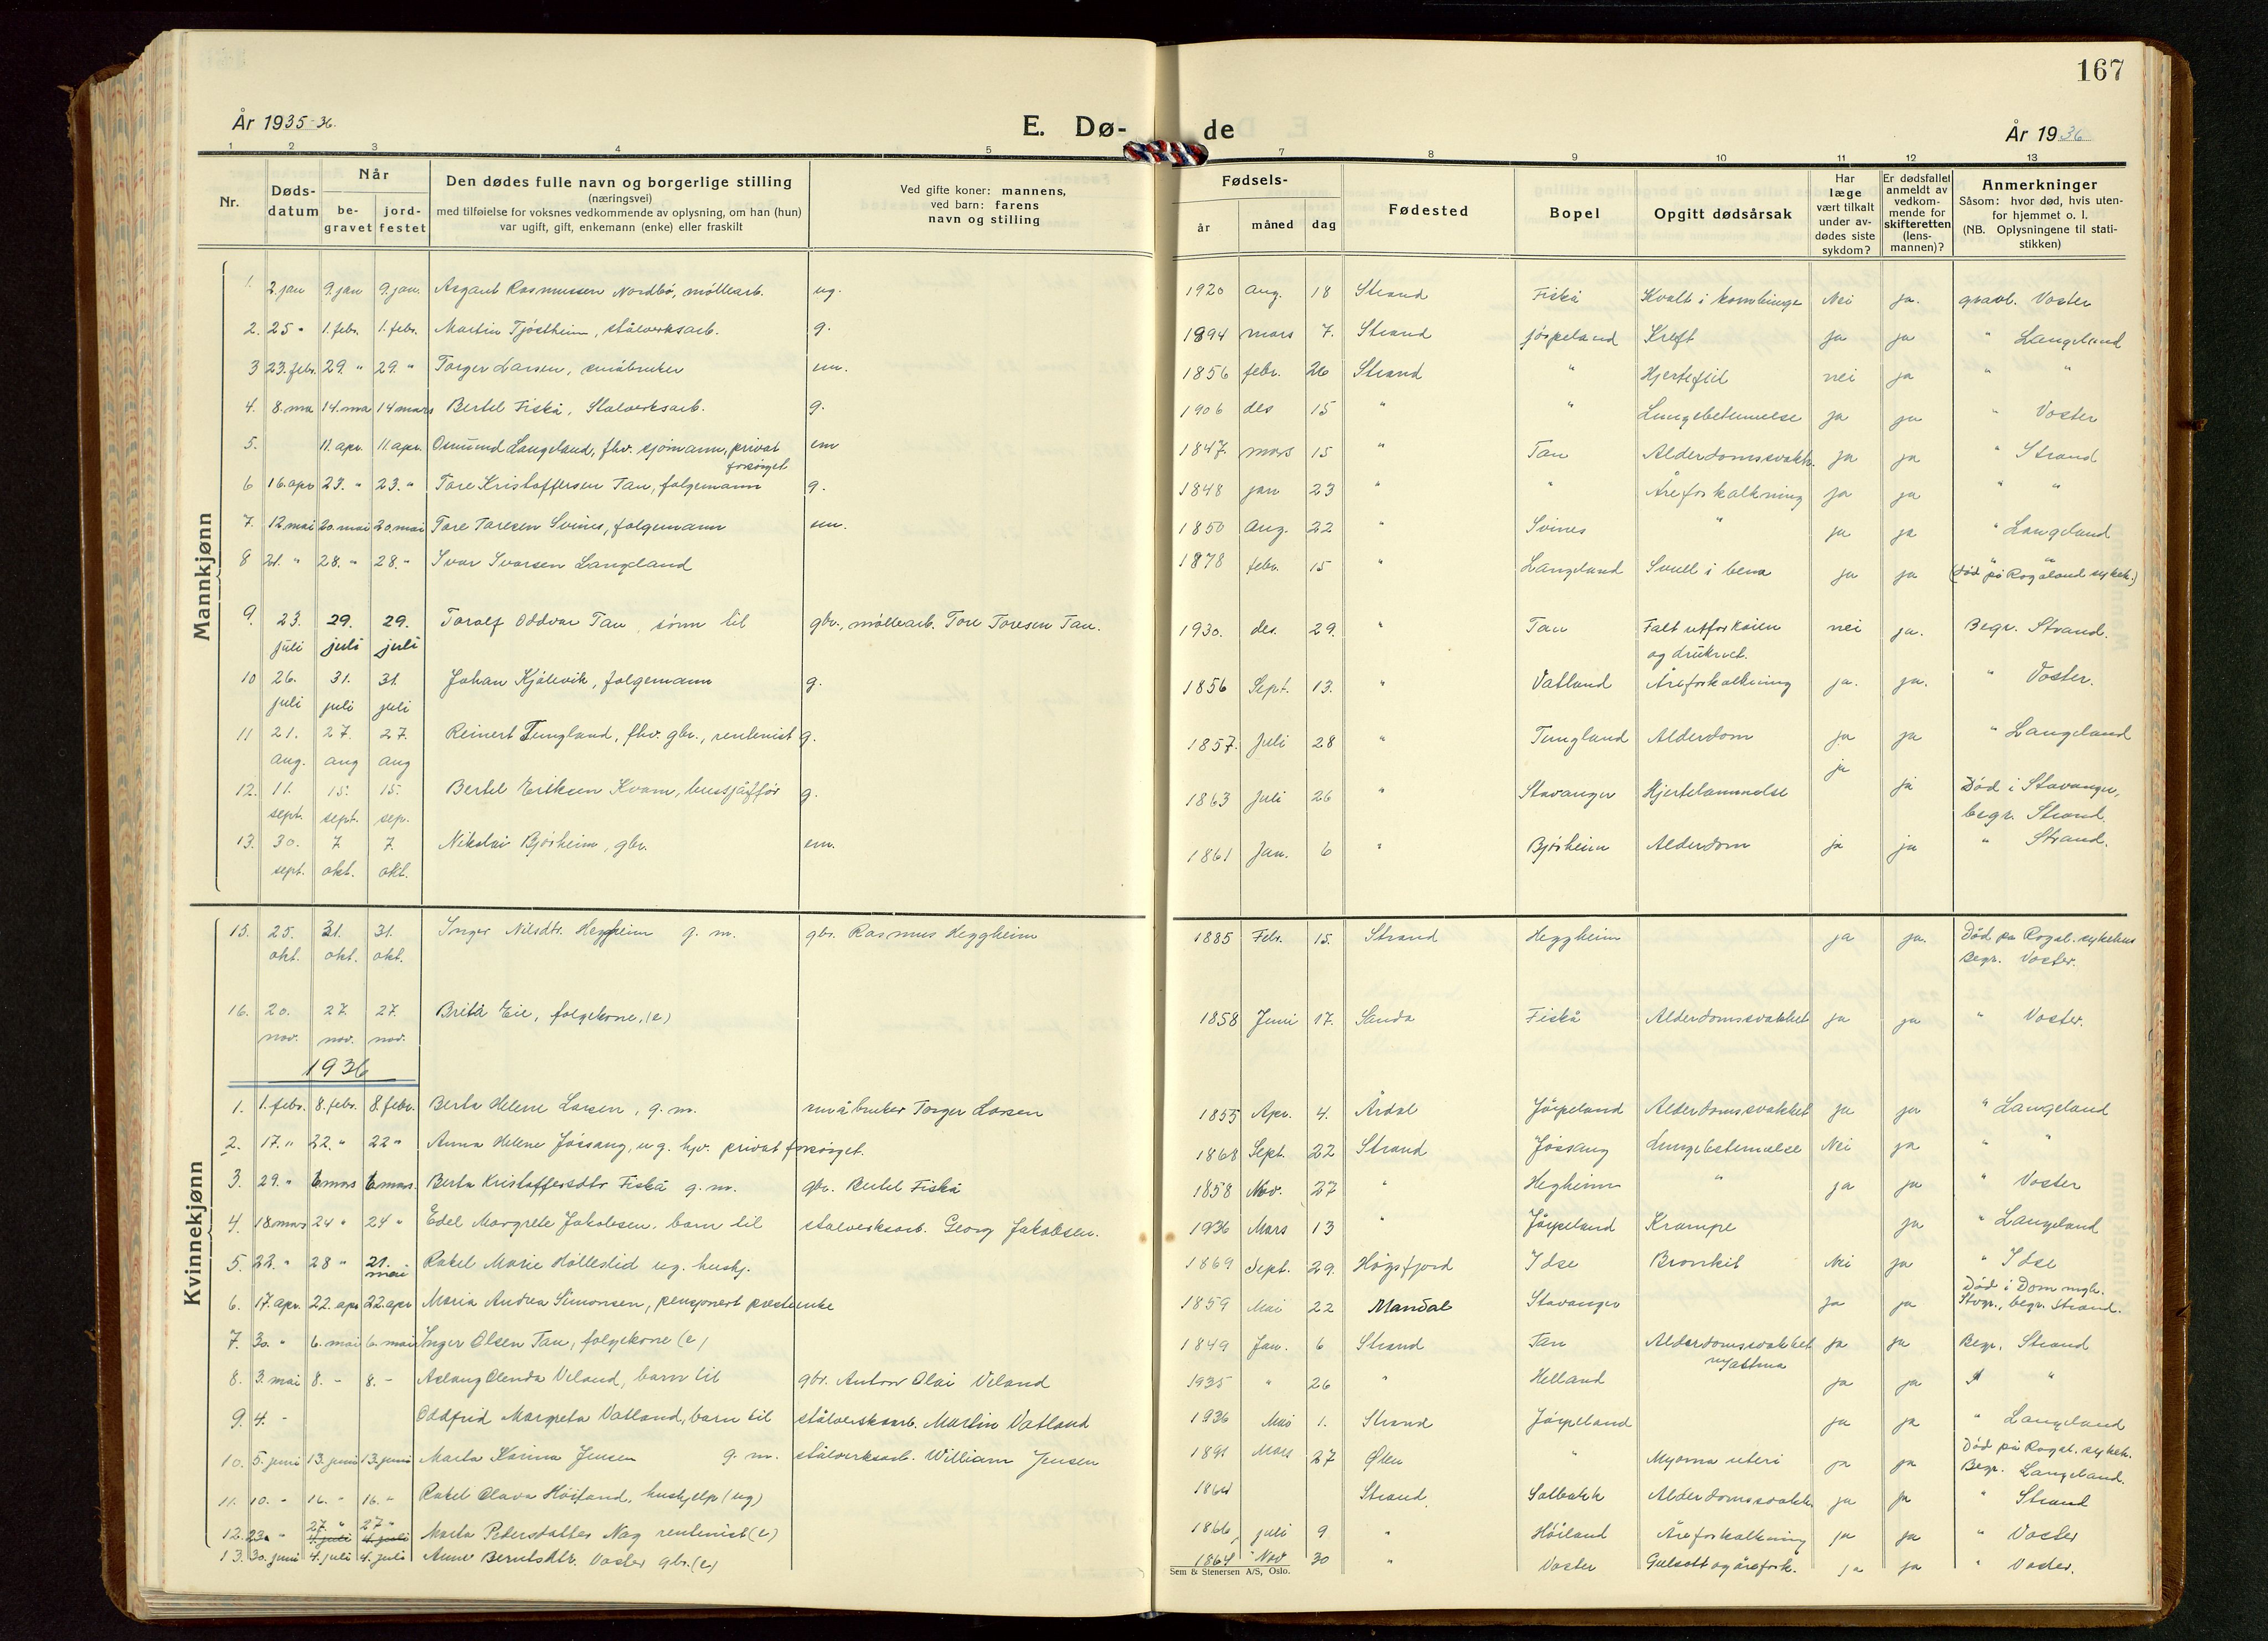 167
År 1935-36.
E. Dø-
de
År 1936
1 2 3 4 5
7 8 9 10 11 12 13
Nr.
Døds-
datum
Når
be-
gravet
jord-
festet
Den dødes fulle navn og borgerlige stilling
(næringsvei)
med tilføielse for voksnes vedkommende av oplysning, om han (hun)
var ugift, gift, enkemann (enke) eller fraskilt
Ved gifte koner: mannens,
ved barn: farens
navn og stilling
Fødsels-
år måned dag
Fødested
Bopel
Opgitt dødsårsak
Har
læge
vært tilkalt
under av-
dødes siste
sykdom?
Er dødsfallet
anmeldt av
vedkom-
mende for
skifteretten
(lens-
mannen)?
Anmerkninger
Såsom: hvor død, hvis uten-
for hjemmet o. l.
(NB. Oplysningene til stati-
stikken)
Mannkjønn
1. 2. jan 9. jan 9. jan. Asgaut Rasmussen Nordbø, møllearb. ug. 1920 Aug. 18 Strand Fiskå Kvalt i kornbinge Nei ja. gravl. Voster
2. 25 " 1. febr. 1. febr. Martin Tjøstheim, stålverksarb. g. 1894 mars 7. Strand Jørpeland Kreft ja ja " Langeland
3 23. febr. 29. " 29. " Torger Larsen, småbruker em. 1856 febr. 26 Strand " Hjertefeil nei ja " "
4. 8. ma 14. ma 14 mars Bertel Fiskå, Stålverksarb. g. 1906 des 15 " " Lungebetennelse ja ja " Voster
5. 11. apr. 11. apr. Osmund Langeland, fhv. sjømann, privat
forsørget em 1847. mars 15 " Tau Alderdomssvakh. ja ja " Strand
6 16. apr 23. " 23. " Tore Kristoffersen Tau, følgemann g. 1848 jan 23 " " Åreforkalkning ja ja " "
7. 12 mai 20. mai 20. mai Tore Toresen Svines, følgemann em. 1850 Aug. 22 " Svines " ja ja " Langeland
8 21. " 28. " 28. " Ivar Ivarsen Langeland 1878 febr. 15 " Langeland Svull i bena ja ja " "
(død på Rogaland sykeh.)
9. 23. juli 29. juli 29. juli Toralf Oddvar Tau, sønn til gbr., møllearb. Tore Toresen Tau. 1930. des. 29. " Tau Falt utfor kaien
og druknet. nei ja. Begr. Strand.
10 26. juli 31. juli 31. juli Johan Kjølevik, følgemann g. 1856 Sept. 13. " Vatland Åreforkalkning ja. ja. " Voster.
11 21. aug. 27. aug 27. aug Reinert Tungland, fhv. gbr., rentenist g. 1857. Juli 28 " Tungland Alderdom ja ja " Langeland
12. 11. sept. 15. sept. 15. sep. Bertel Eriksen Kvam, bussjåffør g. 1863 Juli 26 " Stavanger Hjertelammelse ja ja Død i Stavanger,
begr. Strand.
13. 30. sept. 7 okt. 7. okt. Nikolai Bjørheim, gbr. em. 1861 Jan. 6 " Bjørheim Alderdom ja ja " Strand.
Kvinnekjønn
15. 25. okt. 31. okt. 31. okt. Inger Nilsdtr. Heggheim g. m. gbr. Rasmus Heggheim 1885 Febr. 15. Strand Heggheim ja ja. Død på Rogal. sykehus
Begr. Voster.
16. 20. nov. 27. nov. 27. nov. Brita Eie, følgekone, (e) 1858 Juni 17. Sauda Fiskå Alderdomssvakhet ja ja " Voster.
1936
1. 1. febr. 8. febr. 8. febr. Berta Helene Larsen, g. m. småbruker Torger Larsen 1855 Apr. 4. Årdal Jørpeland Alderdomssvakhet ja ja " Langeland
2. 17. " 22. " 22 " Anna Helene Jøssang, ug. hjv. privat forsørget. 1868 Sept. 22 Strand Jøssang Lungebetennelse Nei ja " "
3. 29. " 6 mars 6 mars. Berta Kristoffersdtr Fiskå g. m. gbr. Bertel Fiskå 1858 Nov. 27 " Hegheim " ja ja " Voster
4. 18. mars 24 " 24 " Edel Margrete Jakobsen, barn til stålverksarb. Georg Jakobsen. 1936 Mars 13 " Jørpeland Krampe ja " Langeland
5. 22. " 28 " 21. mai Rakel Marie Hølleslid ug. hushj. 1869 Sept. 29. Høgsfjord Idse Bronkit Nei ja " Idse
6. 17. apr. 22. apr 22. apr Maria Andrea Simonsen, pensjonert presteenke 1859 Mai 22 Mandal Stavanger ja ja Død i Dom mgh.
Stvgr., begr. Strand.
7. 30. " 6. mai 6. mai Inger Olsen Tau, følgekone (e) 1849 Jan. 6 Strand Tau Alderdomssvakhet
m/astma ja ja Begr. Strand
8. 3. mai 8. - 8. - Aslaug Olenda Veland, barn til gbr. Anton Olai Veland 1935 " 26 " Helland ja ja " "
9. 4. - Oddfrid Margreta Vatland, barn til stålverksarb. Martin Vatland 1936 Mai 1. Strand Jørpeland ja ja " Langeland
10. 5. juni 13. juni 13. juni Marta Karina Jensen g. m. stålverksarb. William Jensen 1891 Mars 27 Ølen " Myoma uteri ja ja Død på Rogal. sykeh.
Begr. Langeland.
11. 10. - 16. - 16. - Rakel Olava Høiland, hushjelp (ug) 1864 Strand. Solbakk Alderdomssvakh. ja ja " Strand
12. 23. " 27. " 27 " 4. juli 4. juli Marta Petersdatter Nag rentenist (e) 1866, juli 9 " Høiland Åreforkalkning ja ja " Voster
13. 30. juni 4. juli 4. juli Anne Berntsdtr. Voster gbr. (e) 1864 Nov 30 " Voster Gulsott og årefork. ja ja " Voster.
Sem & Stenersen A/S, Oslo.